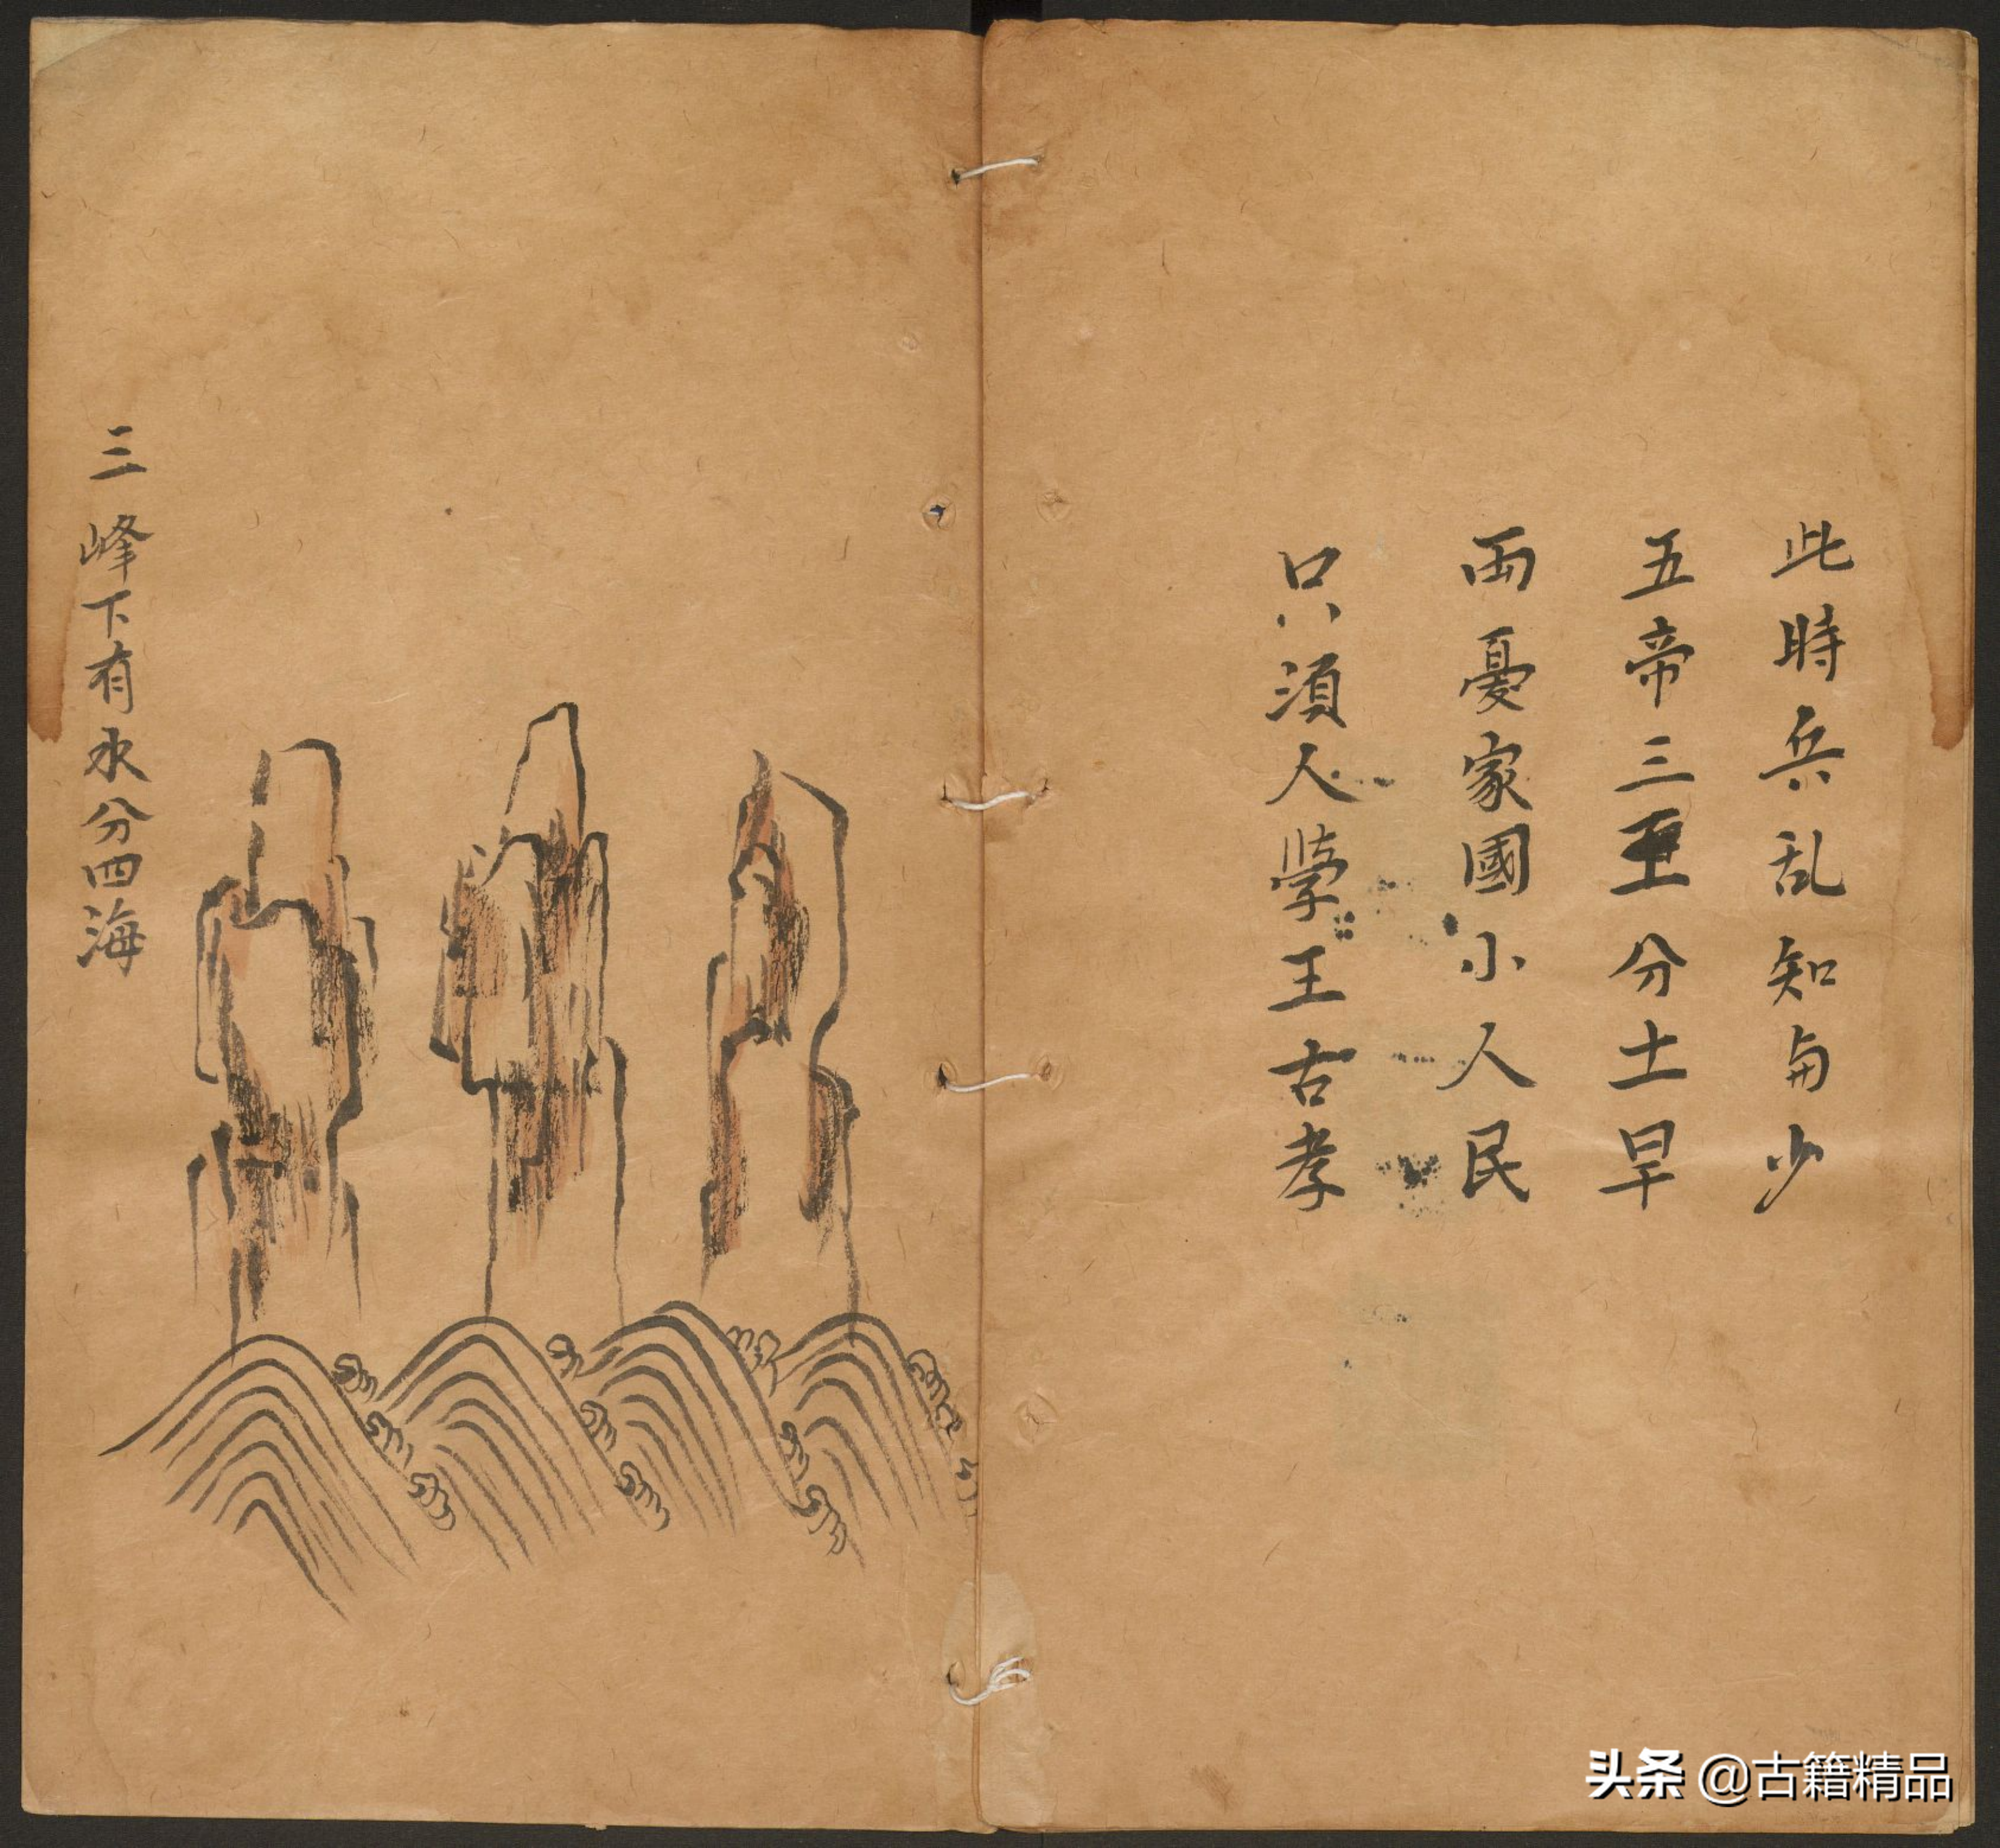 此時兵乱知少
五帝三王分土旱
両憂家國小人民
只湏人學王古孝
三峰下有水分四海
头条 @古籍精品